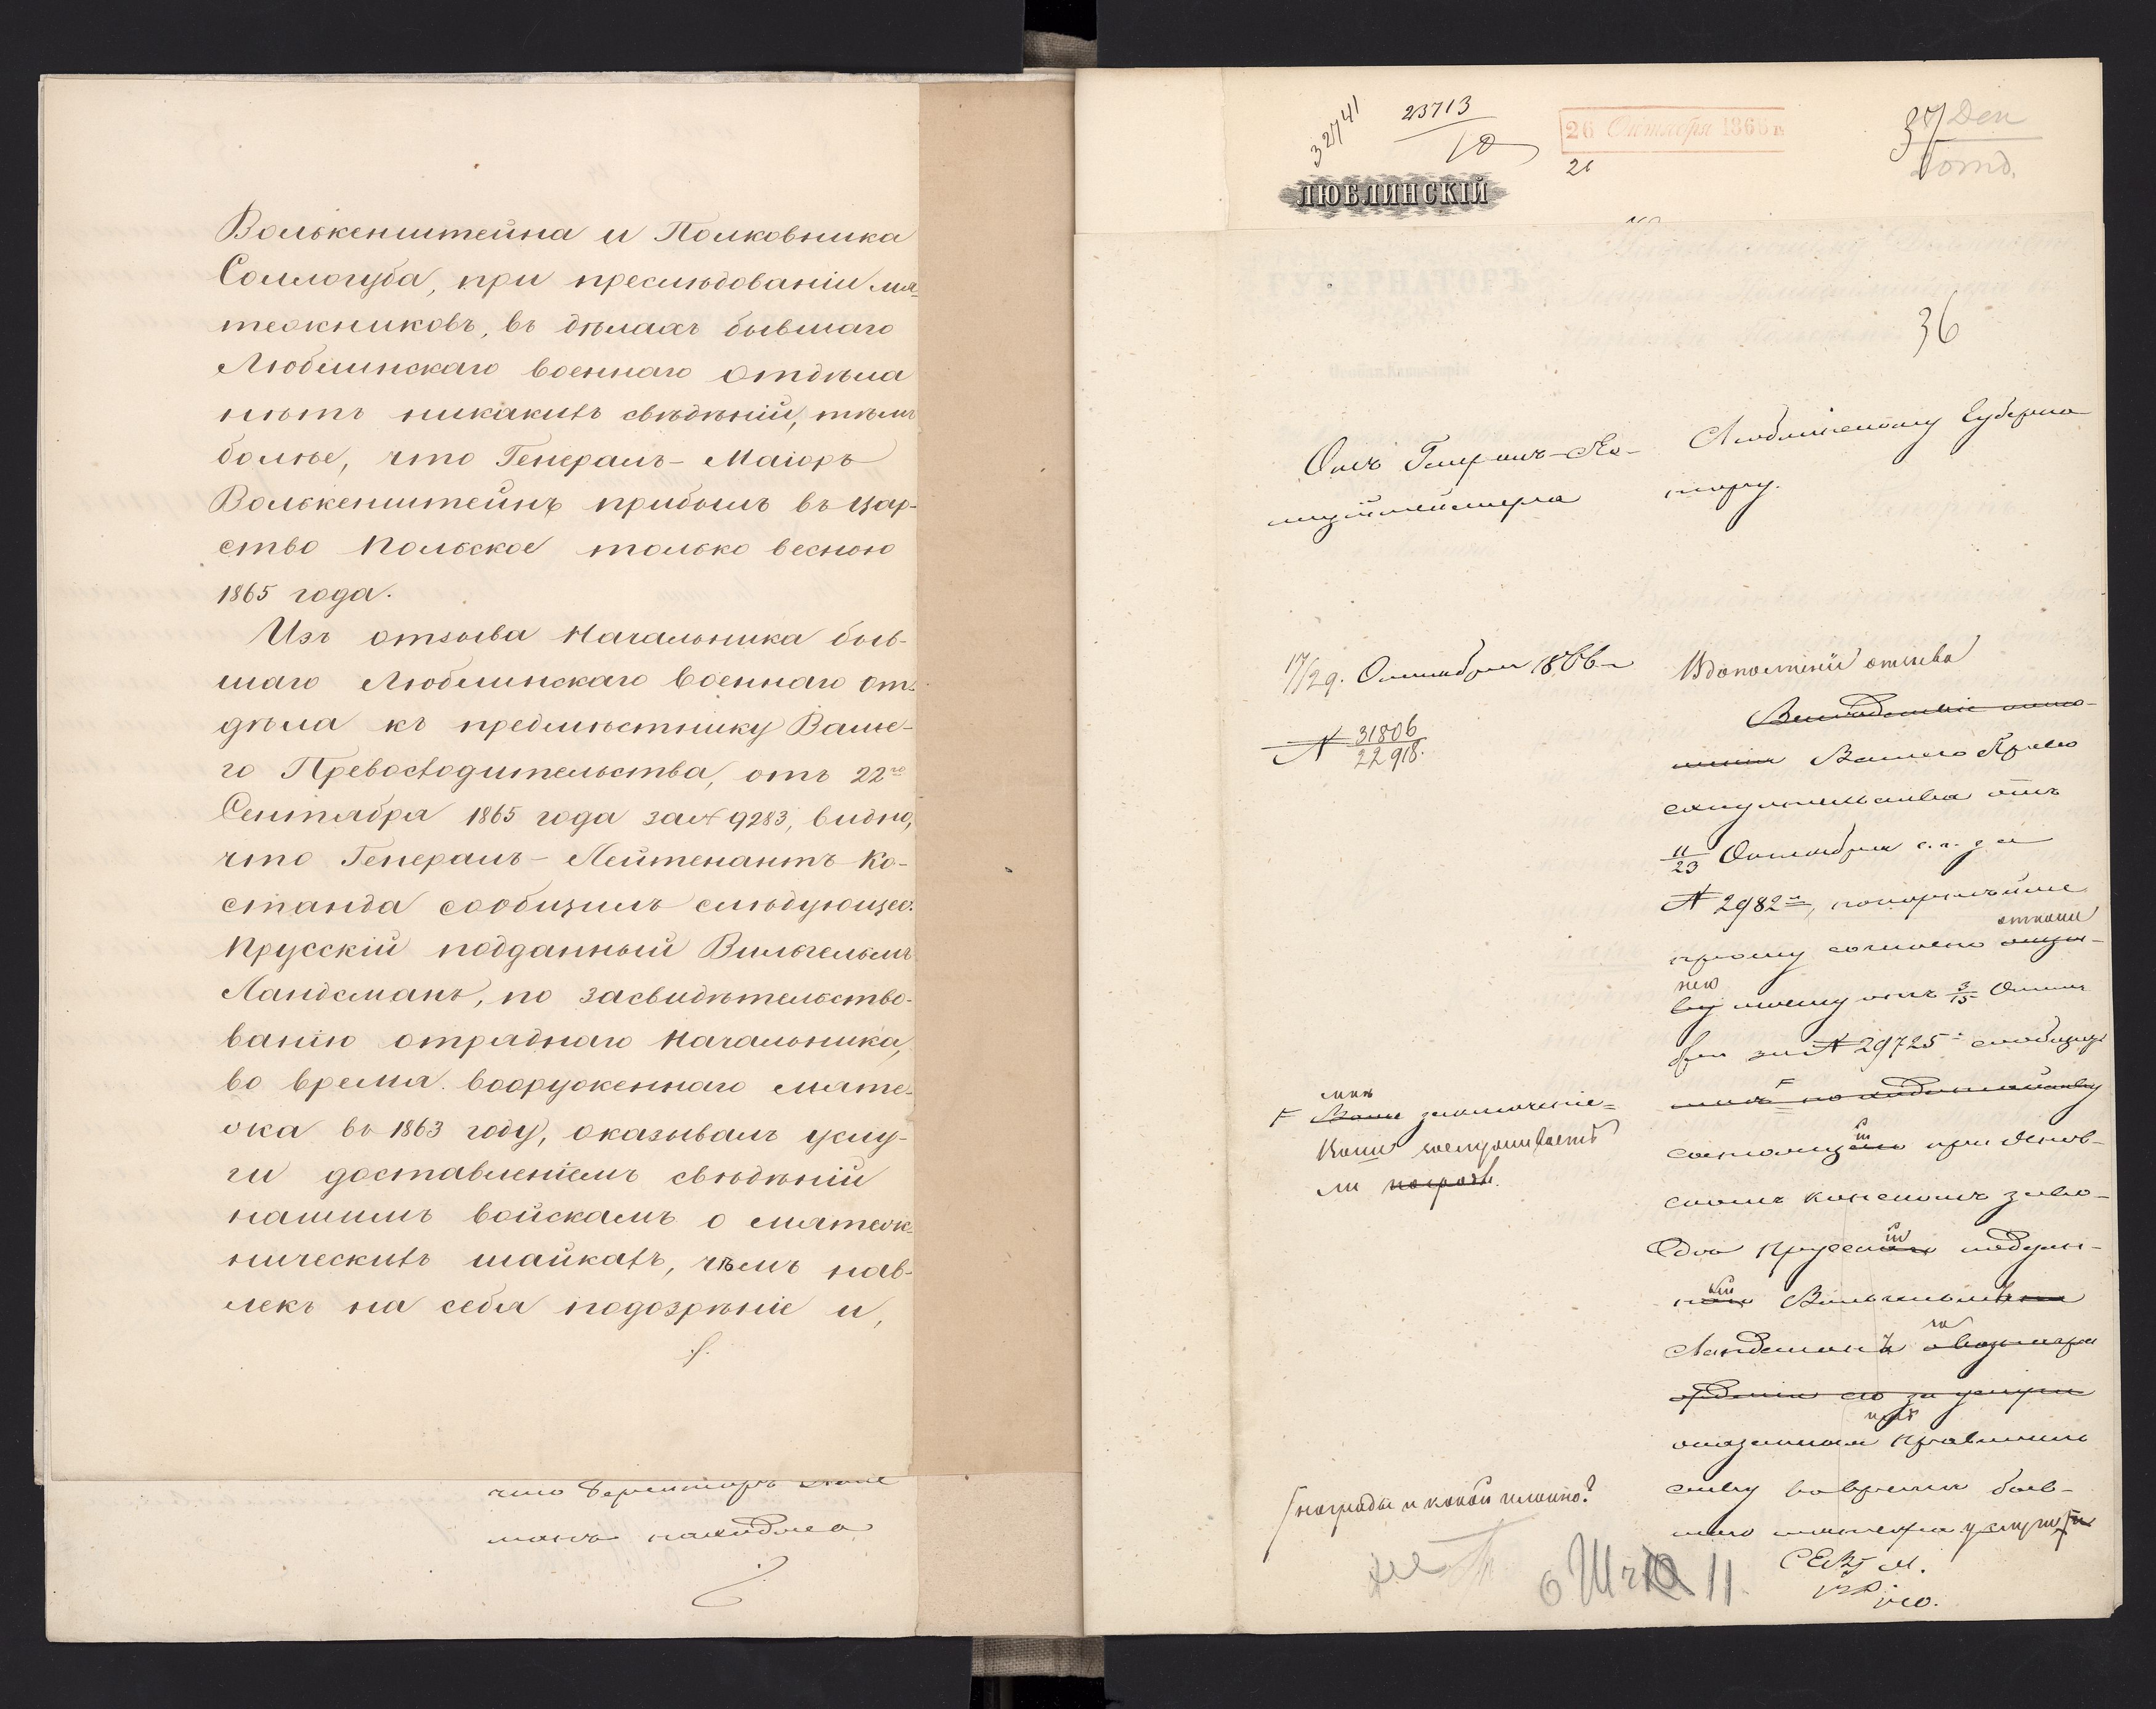 Волькенштейна и Полковника
Соллогуба, при преслѣдованіи мя-
тежниковъ, въ дѣлахъ бывшаго
Люблинскаго военнаго отдѣла
нѣтъ никакихъ свѣдѣній, тѣмъ
болѣе, что Генералъ-Маіоръ
Волькенштейнъ прибылъ въ Цар-
ство Польское только весною
1865 года.
Изъ отзыва Начальника быв-
шаго Люблинскаго военнаго от-
дѣла къ предмѣстнику Ваше-
го Превосходительства, отъ 22го
Сентября 1865 года за № 9283, видно,
что Генералъ-Лейтенантъ Ко-
станда сообщилъ слѣдующее:
Прусскій подданный Вильгельмъ
Ландсманъ, по засвидѣтельство-
ванію отряднаго Начальника,
во время вооруженнаго мяте-
жа въ 1863 году, оказывалъ услу-
ги доставленіемъ свѣдѣній
нашимъ войскамъ о мятеж-
ническихъ шайкахъ, чѣмъ нав-
лекъ на себя подозрѣніе и,
что
манъ находился
32741
23713
10
26 Октября 1866 г.
26
37 Деп
отд.
ЛЮБЛИНСКІЙ
ГУБЕРНАТОРЪ
36
Отъ Генералъ-По-
лиціймейстера
Люблинскому Губерна-
тору.
17/29. Октября 1866 г.
№ 31806
22918.
Въ дополненіи отзыва
Вслѣдствіе отно-
шенія Вашего Прево
сходительства отъ
11/23 Октября с. г. за
№ 2982м, покорнѣйше
отноше
прошу согласно отзы-
нію
ву моему отъ 3/15 Октя
бря за № 29725 сообщить
мнѣ по ходатайству
состоящій при Янов-
скомъ конскомъ заво-
дѣ Прусскій поддан-
ный Вильгельмъ
Ландсманъ о вознагра
жденіи его за услуги
оказанныя Правитель
ству во время быв-
шаго мятежа услуги
мнѣ
Ваше заключеніе
заслуживаетъ
ли
награды и какой именно?